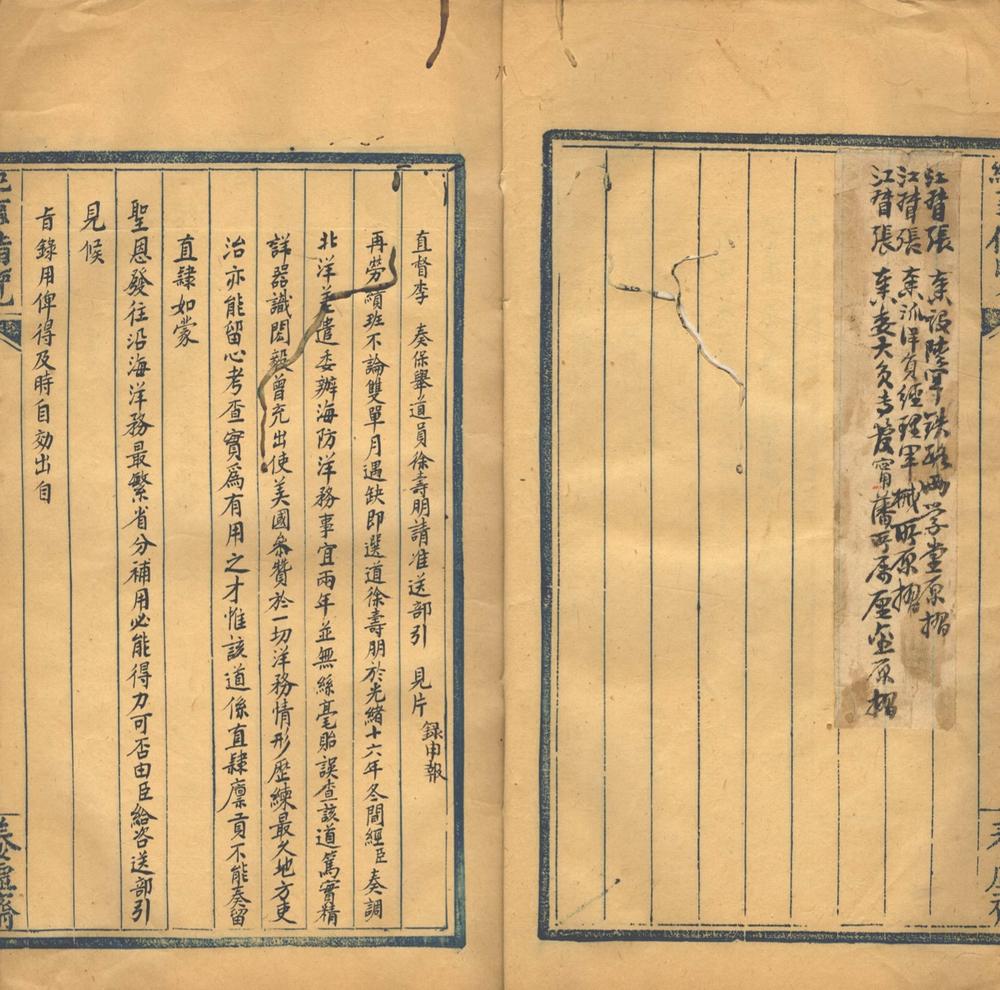 江督張 奏設陸軍鉄路兩学堂原摺
江督張 奏派洋員經理軍械所原摺
江督張 奏委大員專發甯藩所屬厘金原摺
直督李 奏保舉道員徐壽朋請准送部引 見片 錄申報
再勞績班不論雙單月遇缺即選道徐壽朋於光緒十六年冬間經臣 奏調
北洋差遣委辦海防洋務事宜兩年並無絲毫貽誤查該道篤實精
詳器識閎毅曾充出使美國叅贊於一切洋務情形歷練最久地方吏
治亦能留心考查實爲有用之才惟該道係直隸廪貢不能奏留
直隸如蒙
聖恩發往沿海洋務最繁省分補用必能得力可否由臣給咨送部引
見候
旨錄用俾得及時自効出自